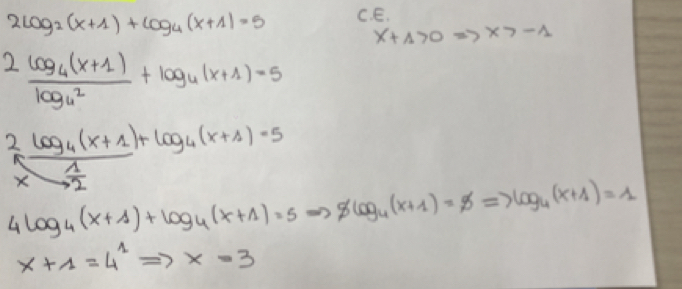 2log₂(x+1)+log₄(x+1)=5
C.E.
x+1>0 => x>-1
2 log₄(x+1)/log₄2 + log₄(x+1)=5
2 log₄(x+1)/(1/2) + log₄(x+1)=5
x
4log₄(x+1)+log₄(x+1)=5 => 5log₄(x+1)=5 => log₄(x+1)=1
x+1=4¹ => x=3